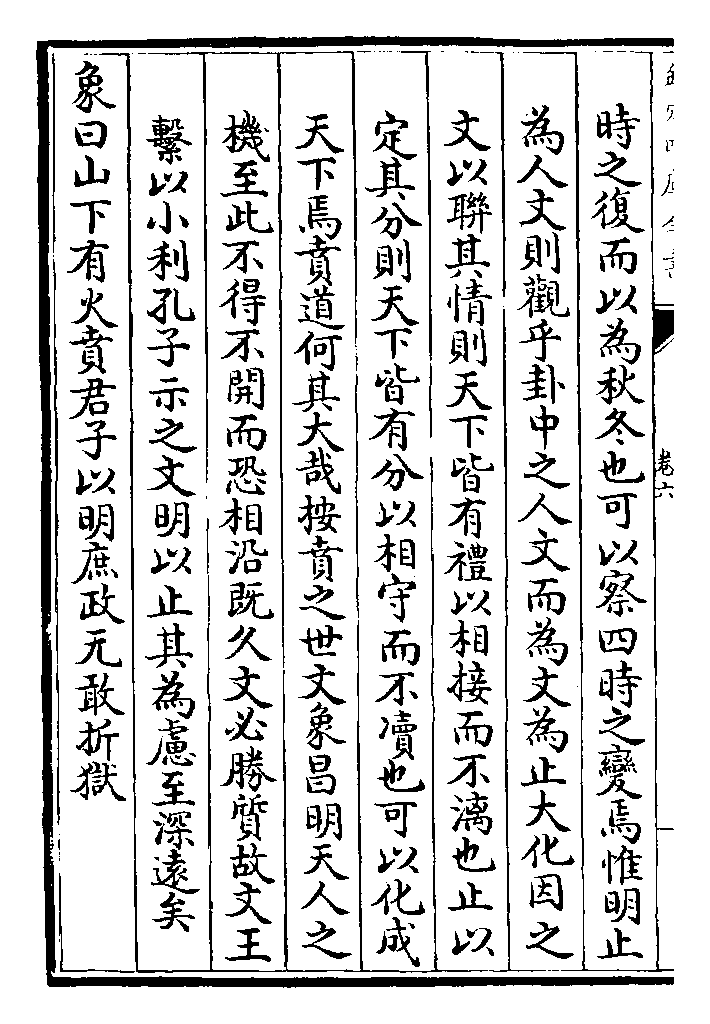 欽定四庫全書
卷六
時之復而以為秋冬也可以察四時之變焉惟明止
為人文則觀乎卦中之人文而為文為止大化因之
文以聯其情則天下皆有禮以相接而不漓也止以
定其分則天下皆有分以相守而不凟也可以化成
天下焉賁道何其大哉按賁之世文象昌明天人之
機至此不得不開而恐相沿既久文必勝質故文王
繫以小利孔子示之文明以止其為慮至深遠矣
象曰山下有火賁君子以明庶政无敢折獄